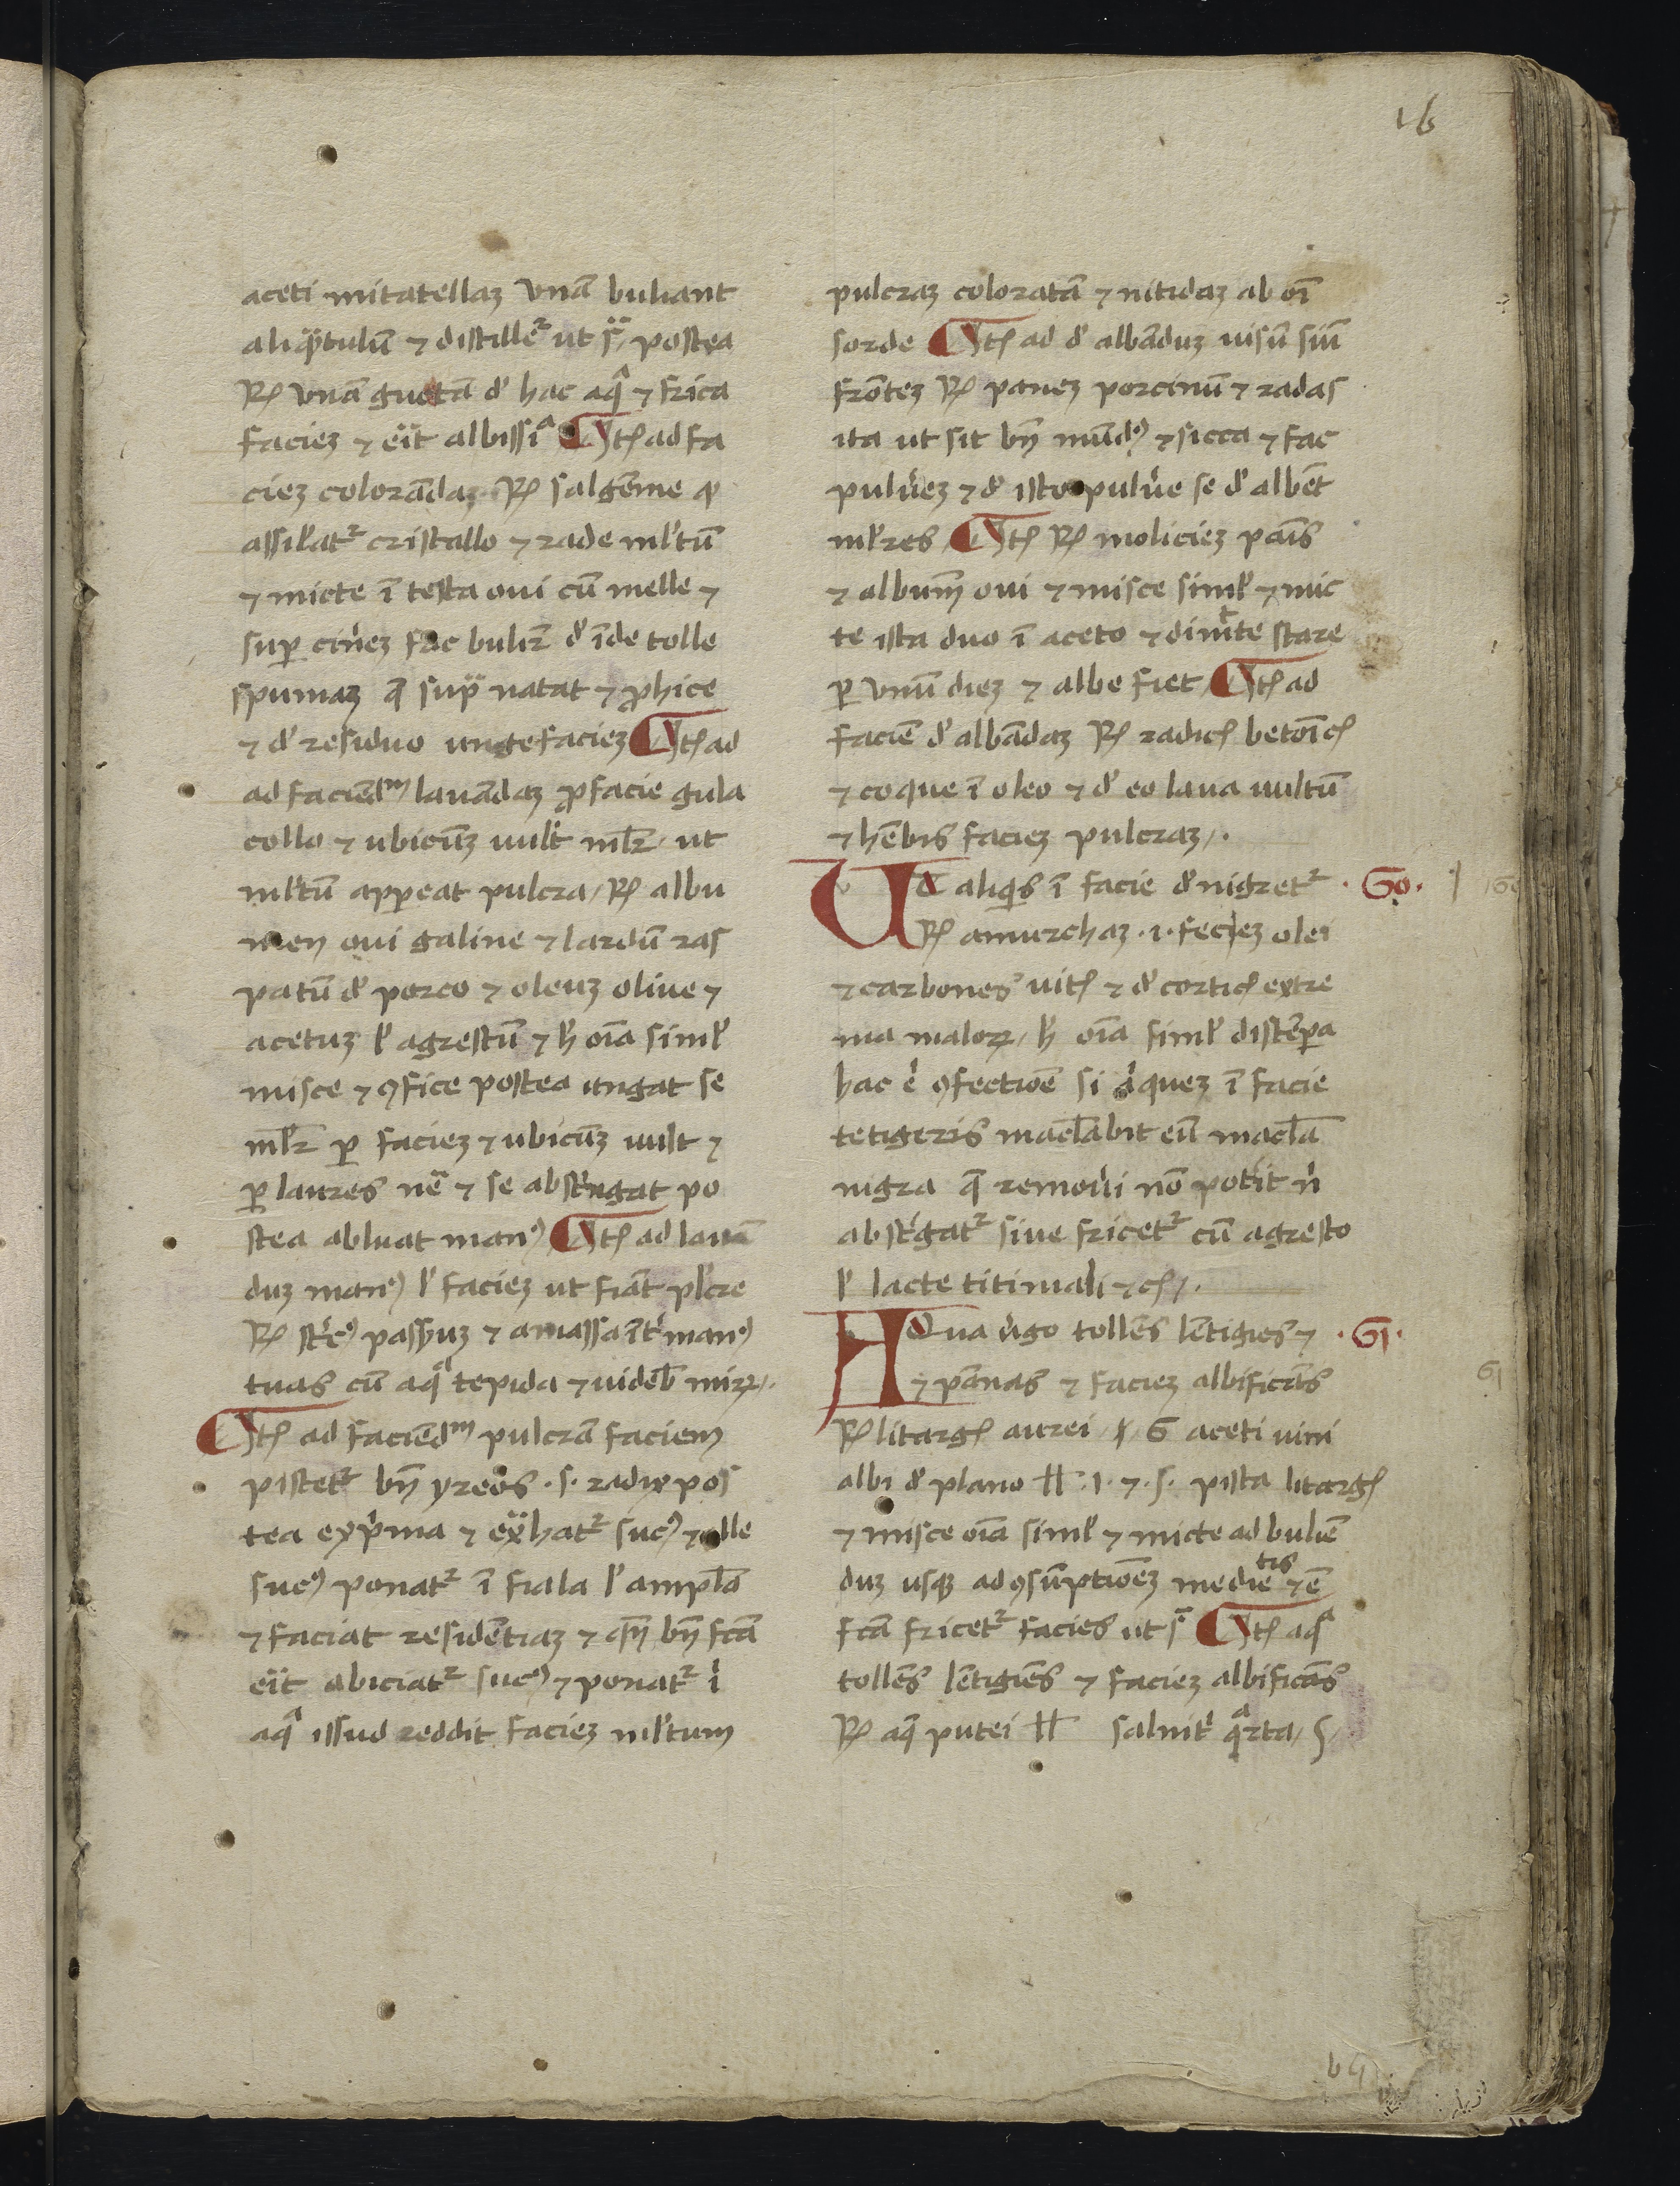 16
aceti mitatellaꝫ vnā buliant
aliqᷓtulū ⁊ distilleᷣ ut sᷓ postea
℞ vnā guttā d' hac aqᷓ ⁊ frica
facieꝫ ⁊ eit albissiᷓ Itꝫ ad fa
cieꝫ colorādaꝫ ℞ salgēme qꝫ
assil'atᷣ cristallo ⁊ rade ml'tū
⁊ micte ī testa oui cū melle ⁊
suꝑ cin'eꝫ fac bulir̄ d' īde tolle
spumaꝫ q̄ supᷓ natat ⁊ ꝓhice
⁊ d' residuo unge facieꝫ Itꝫ ad
ad faciēdᵐ lauādaꝫ ꝓ facie gula
collo ⁊ ubicūꝫ uult ml'r ut
ml'tū apꝑeat pulcra ℞ albu
men oui galine ⁊ lardū ras
patū d' porco ⁊ oleuꝫ oliue ⁊
acetuꝫ l' agrestū ⁊ h' oīa siml'
misce ⁊ ꝯfice postea ungat se
ml'r ꝑ facieꝫ ⁊ ubicūꝫ uult ⁊
ꝑ laures nē ⁊ se abst'ngat po
stea abluat manꝰ Itꝫ ad lauā
duꝫ manꝰ l' facieꝫ ut fiāt pl'cre
℞ st'cꝰ passyuꝫ ⁊ amassa īt' manꝰ
tuas cū aqᷓ tepida ⁊ uideb' mirꝝ
Itꝫ ad faciēdᵐ pulcrā faciem
pistetᷣ bn̄ yreos .s. radix pos
tea exp'ma ⁊ ext'hatᷣ sucꝰ ⁊ tolle
sucꝰ ponatᷣ ī fiala l' ampl'a
⁊ faciat residētiaꝫ ⁊ qn̄ bn̄ fcā
eit abiciatᷣ sucꝰ ⁊ ponatᷣ ī
aqᷓ issud reddit facieꝫ ml'tum
pulcraꝫ coloratā ⁊ nitidaꝫ ab oī
sorde Itꝫ ad d' albāduꝫ uisū siū
frōteꝫ ℞ paneꝫ porcinū ⁊ radas
ita ut sit bn̄ mūdꝰ ⁊ sicca ⁊ fac
pulu'eꝫ ⁊ d' isto pulu'e se d' albēt
ml'res Itꝫ ℞ molicieꝫ pāis
⁊ albumē oui ⁊ misce siml' ⁊ mic
te ista duo ī aceto ⁊ dimicte stare
ꝑ vnū dieꝫ ⁊ albe fiet Itꝫ ad
faciē d' albādaꝫ ℞ radicꝫ betōicꝫ
⁊ coque ī oleo ⁊ d' eo laua uultū
⁊ hēbis facieꝫ pulcraꝫ.
Ut aliqis ī facie d'nigretᷣ .60. 60
℞ amurchaꝫ .i. fecieꝫ olei
⁊ carbones uitꝫ ⁊ d' corticꝫ extre
ma malorꝝ h' oīa siml' distēꝑa
hac ē ꝯfectioē si aliqueꝫ ī facie
tetigeris macl'abit eū macl'a
nigra q̄ remou'i nō pot'it n'
abst'gatᷣ siue fricetᷣ cū agresto
l' lacte titimali ⁊cꝫ.
Aqua u'go tollēs lētigies ⁊ .61.
⁊ pānas ⁊ facieꝫ albificās 61
℞ litargꝫ aurei ʒ 6 aceti uini
albi d' plano ℔ .1. ⁊ .s. pista litargꝫ
⁊ misce oīa siml' ⁊ micte ad buliē
duꝫ usqꝫ ad ꝯsūptioēꝫ medietis ⁊ ē
fcā fricetᷣ facies ut sᷓ Itꝫ aqᷓ
tollēs lētigies ⁊ facieꝫ albificās
℞ aq̄ putei ℔ salnit' qᷓrta .s.